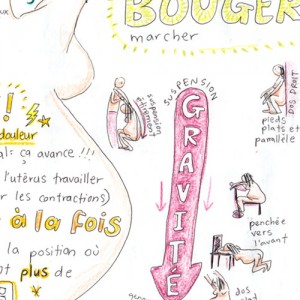 ux
BOUGER
marcher
!
douleur
al: ça avance !!!
l'utérus travailler
r les contractions)
à la fois
la position où
nt plus de
suspension
étirement
SUSPENSION
GRAVITÉ
DOS DROIT
pieds
plats et
parallèle
penchée
vers
l'avant
dos